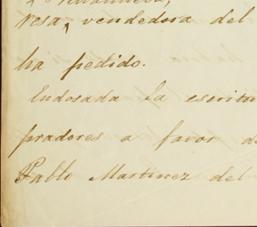 resa, vendedora del
ha pedido.
Endosada la escritu
pradores a favor de
Pablo Martinez del